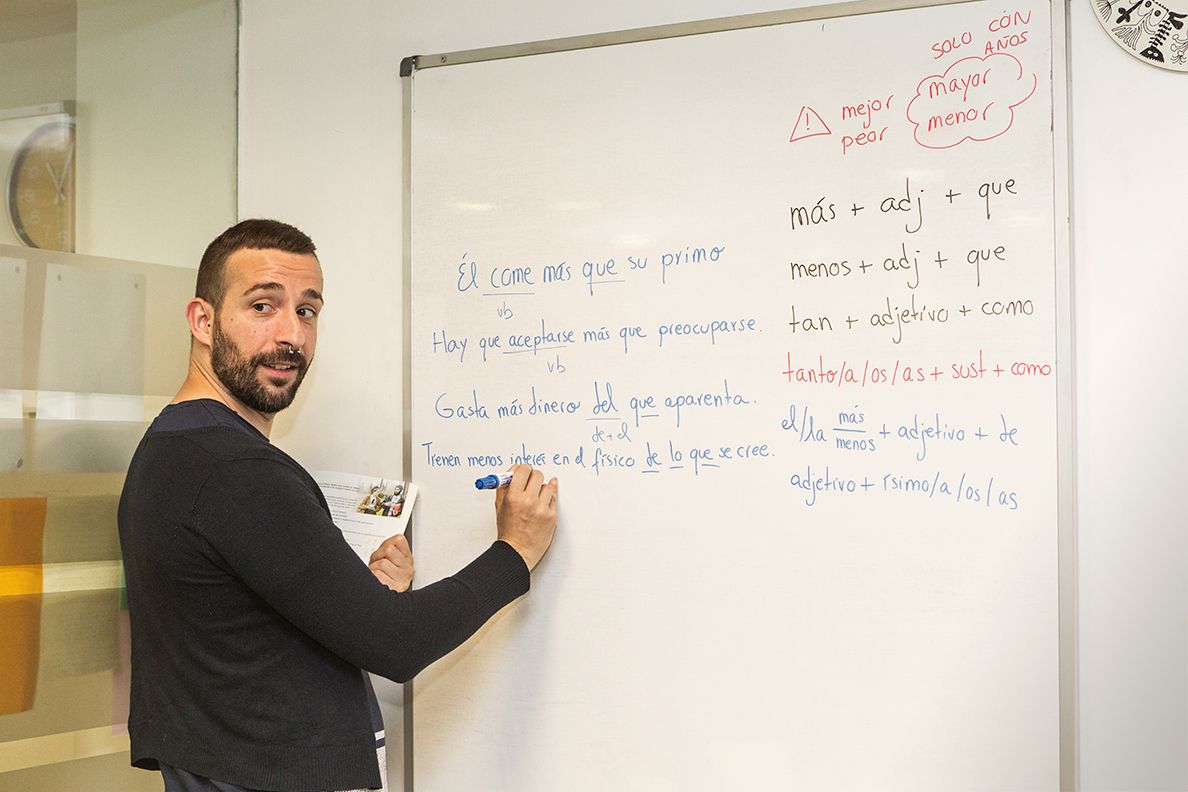 Él come más que su primo
vb
Hay que aceptarse más que preocuparse.
vb
Gasta más dinero del que aparenta.
de+el
Tienen menos interés en el físico de lo que se cree.
SOLO CON
AÑOS
! mejor mayor
peor menor
más + adj + que
menos + adj + que
tan + adjetivo + como
tanto/a/os/as + sust + como
el/la más/menos + adjetivo + de
adjetivo + ísimo/a/os/as